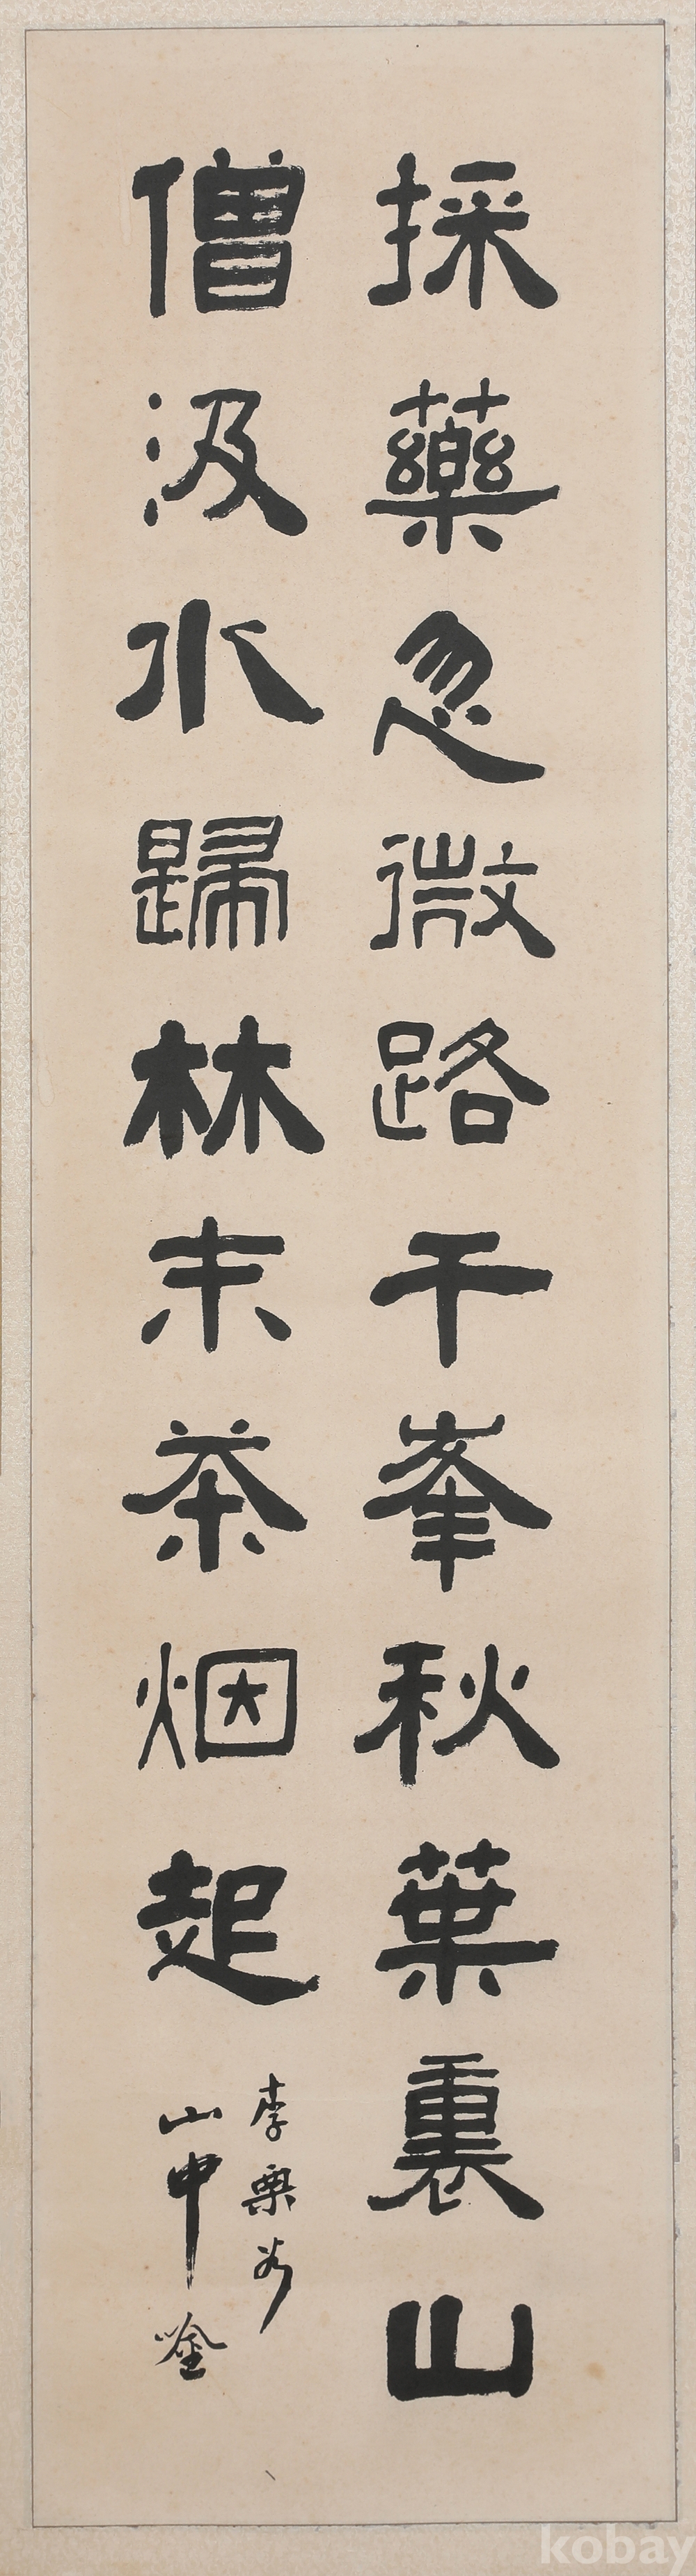 採藥忽微路千峯秋葉裏山
僧汲水歸林末茶烟起
李栗谷
山中
kobay